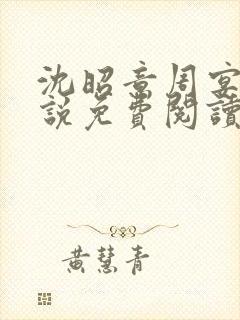 沈昭章周宴
說免費閱讀
黃慧青